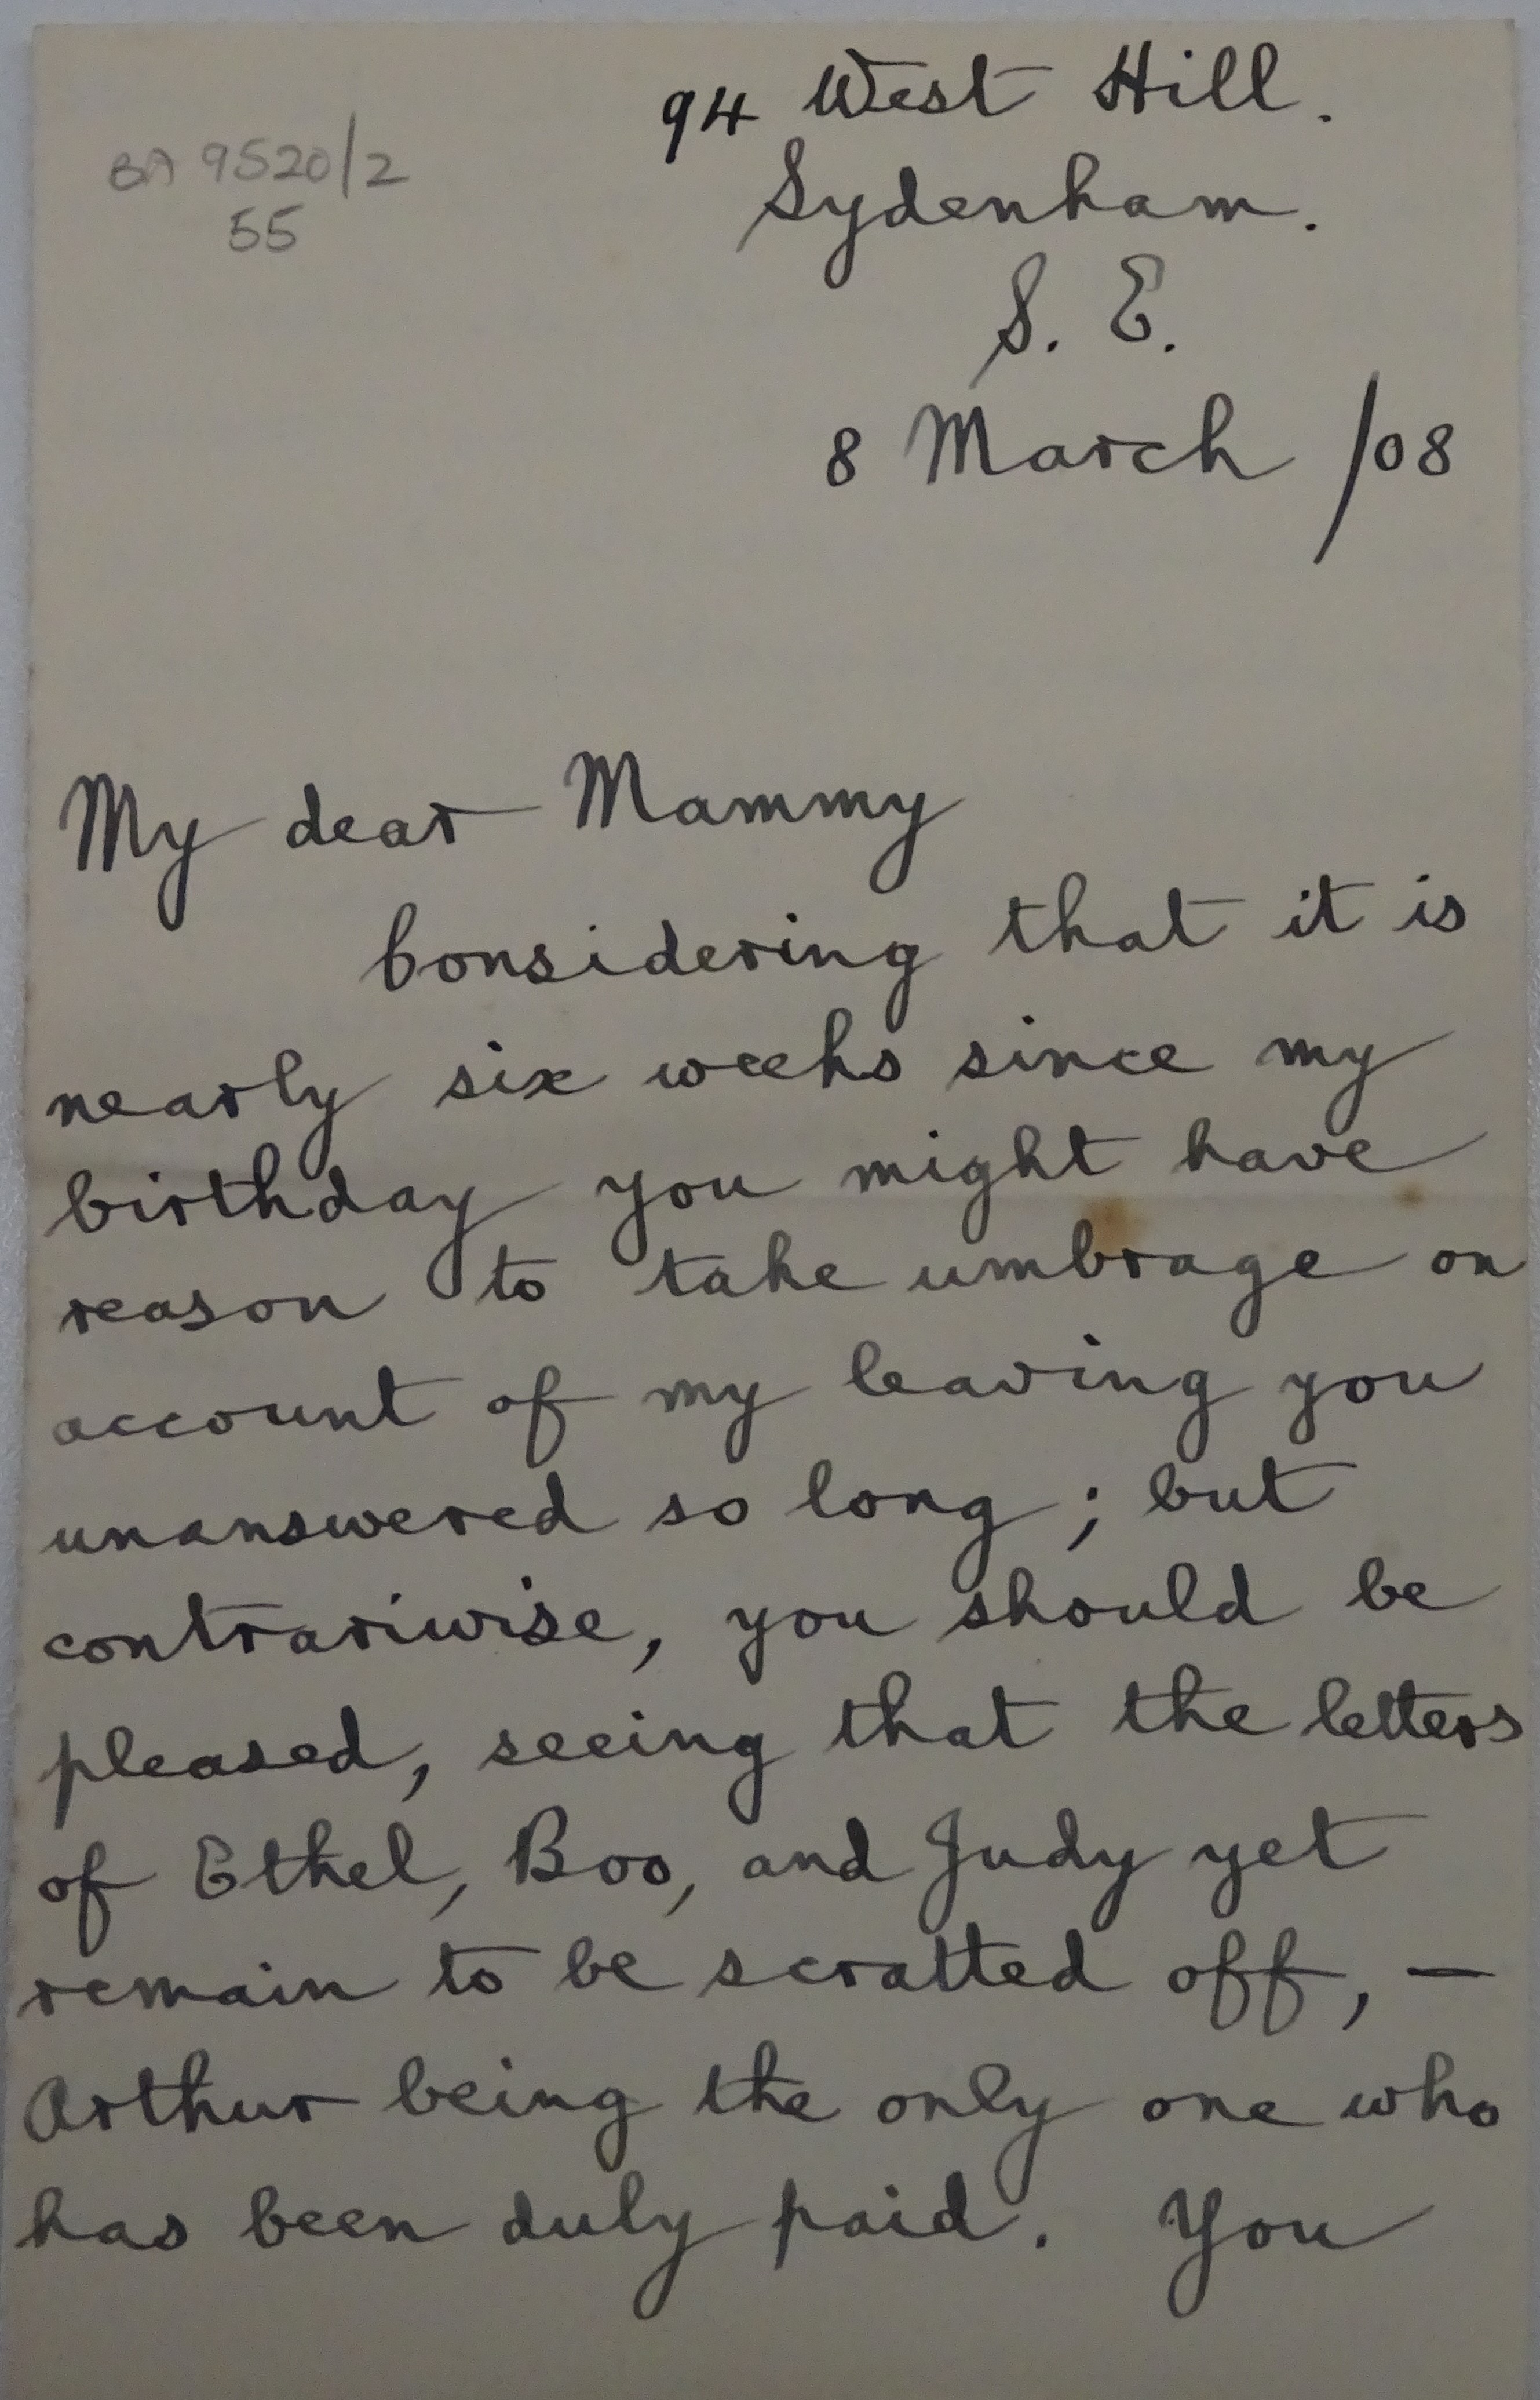 94 West Hill.
BA 9520/2
55
Sydenham.
S. E.
8 March /08
My dear Mammy
Considering that it is
nearly six weeks since my
birthday you might have
reason to take umbrage on
account of my leaving you
unanswered so long; but
contrariwise, you should be
pleased, seeing that the letters
of Ethel, Boo, and Judy yet
remain to be scratted off, —
Arthur being the only one who
has been duly paid. You